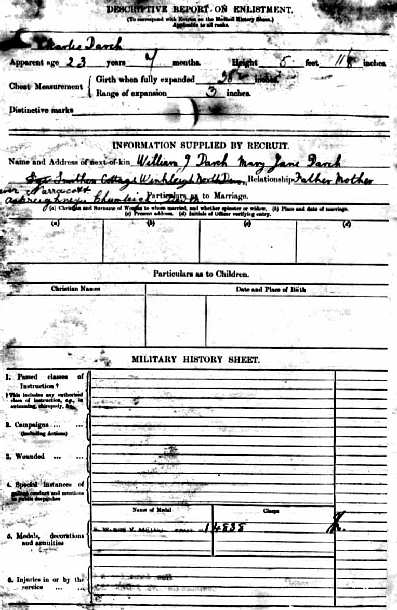 DESCRIPTIVE REPORT ON ENLISTMENT.
(To correspond with Entries on the Medical History Sheet.)
Applicable to all ranks.
Charles Darch
Apparent age 23 years 7 months. Height 5 feet inches.
Chest Measurement { Girth when fully expanded inches.
Range of expansion 3 inches.
Distinctive marks
INFORMATION SUPPLIED BY RECRUIT.
Name and Address of next-of-kin William J Darch Mary Jane Darch
Cottage Winkleigh North Devon, Relationship Father Mother
Narracott
Chumleigh
Particulars as to Marriage.
(a) Christian and Surname of Woman to whom married, and whether spinster or widow. (b) Place and date of marriage.
(c) Present address. (d) Initials of Officer verifying entry.
(a) (b) (c) (d)
Particulars as to Children.
Christian Names Date and Place of Birth
MILITARY HISTORY SHEET.
1. Passed classes of
Instruction †
† This includes any authorised
class of instruction, e.g., in
swimming, chiropody, &c.
2. Campaigns ... ...
(including Actions)
3. Wounded ... ...
4. Special instances of
gallant conduct and mentions
in public despatches
Name of Medal Clasps
14838
5. Medals, decorations
and annuities
6. Injuries in or by the
service ... ...